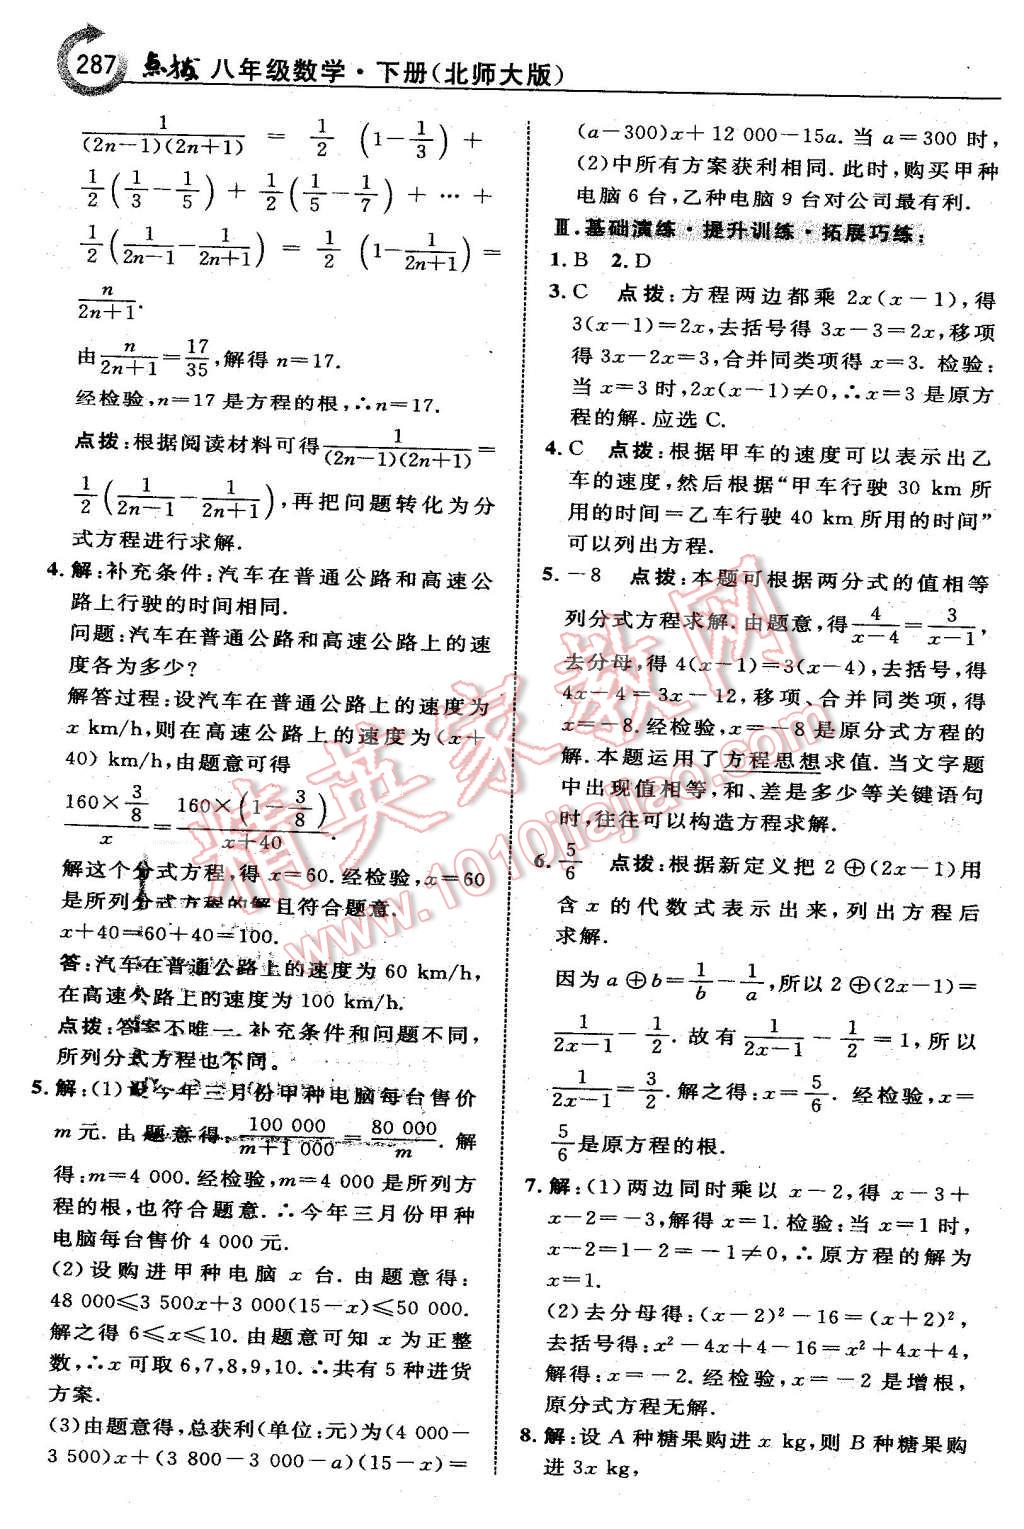 287 点拨 八年级数学·下册(北师大版)
1/((2n-1)(2n+1)) = 1/2 (1-1/3) +
1/2(1/3-1/5) + 1/2(1/5-1/7) + … +
1/2(1/(2n-1)-1/(2n+1)) = 1/2 (1-1/(2n+1)) =
n/(2n+1).
由n/(2n+1)=17/35,解得 n=17.
经检验,n=17 是方程的根,∴n=17.
点拨:根据阅读材料可得1/((2n-1)(2n+1))=
1/2(1/(2n-1)-1/(2n+1)),再把问题转化为分
式方程进行求解.
4. 解:补充条件:汽车在普通公路和高速公
路上行驶的时间相同.
问题:汽车在普通公路和高速公路上的速
度各为多少?
解答过程:设汽车在普通公路上的速度为
x km/h,则在高速公路上的速度为(x+
40) km/h,由题意可得
(160×3/8)/x=(160×(1-3/8))/(x+40).
解这个分式方程,得 x=60.经检验,x=60
是所列分式方程的解且符合题意.
x+40=60+40=100.
答:汽车在普通公路上的速度为 60 km/h,
在高速公路上的速度为 100 km/h.
点拨:答案不唯一.补充条件和问题不同,
所列分式方程也不同.
5. 解:(1)设今年三月份甲种电脑每台售价
m 元.由题意得,100 000/(m+1 000)=80 000/m. 解
得:m=4 000.经检验,m=4 000 是所列方
程的根,也符合题意.∴今年三月份甲种
电脑每台售价 4 000 元.
(2)设购进甲种电脑 x 台.由题意得:
48 000≤3 500x+3 000(15-x)≤50 000.
解之得 6≤x≤10.由题意可知 x 为正整
数,∴x 可取 6,7,8,9,10.∴共有 5 种进货
方案.
(3)由题意得,总获利(单位:元)为(4 000-
3 500)x+(3 800-3 000-a)(15-x)=
(a-300)x+12 000-15a.当 a=300 时,
(2)中所有方案获利相同.此时,购买甲种
电脑 6 台,乙种电脑 9 台对公司最有利.
Ⅲ.基础演练·提升训练·拓展巧练:
1. B 2. D
3. C 点拨:方程两边都乘 2x(x-1),得
3(x-1)=2x,去括号得 3x-3=2x,移项
得 3x-2x=3,合并同类项得 x=3. 检验:
当 x=3 时,2x(x-1)≠0,∴x=3 是原方
程的解.应选 C.
4. C 点拨:根据甲车的速度可以表示出乙
车的速度,然后根据“甲车行驶 30 km 所
用的时间=乙车行驶 40 km 所用的时间”
可以列出方程.
5. -8 点拨:本题可根据两分式的值相等
列分式方程求解.由题意,得4/(x-4)=3/(x-1),
去分母,得 4(x-1)=3(x-4),去括号,得
4x-4=3x-12,移项、合并同类项,得
x=-8.经检验,x=-8 是原分式方程的
解.本题运用了方程思想求值.当文字题
中出现值相等,和、差是多少等关键语句
时,往往可以构造方程求解.
6. 5/6 点拨:根据新定义把 2⊕(2x-1)用
含 x 的代数式表示出来,列出方程后
求解.
因为 a⊕b=1/b-1/a,所以 2⊕(2x-1)=
1/(2x-1)-1/2. 故有 1/(2x-1)-1/2=1,所以
1/(2x-1)=3/2. 解之得:x=5/6. 经检验,x=
5/6是原方程的根.
7. 解:(1)两边同时乘以 x-2,得 x-3+
x-2=-3,解得 x=1.检验:当 x=1 时,
x-2=1-2=-1≠0,∴原方程的解为
x=1.
(2)去分母得:(x-2)²-16=(x+2)²,
去括号得:x²-4x+4-16=x²+4x+4,
解得:x=-2.经检验,x=-2 是增根,
原分式方程无解.
8. 解:设 A 种糖果购进 x kg,则 B 种糖果购
进 3x kg,
精英家教网
www.1010jiajiao.com